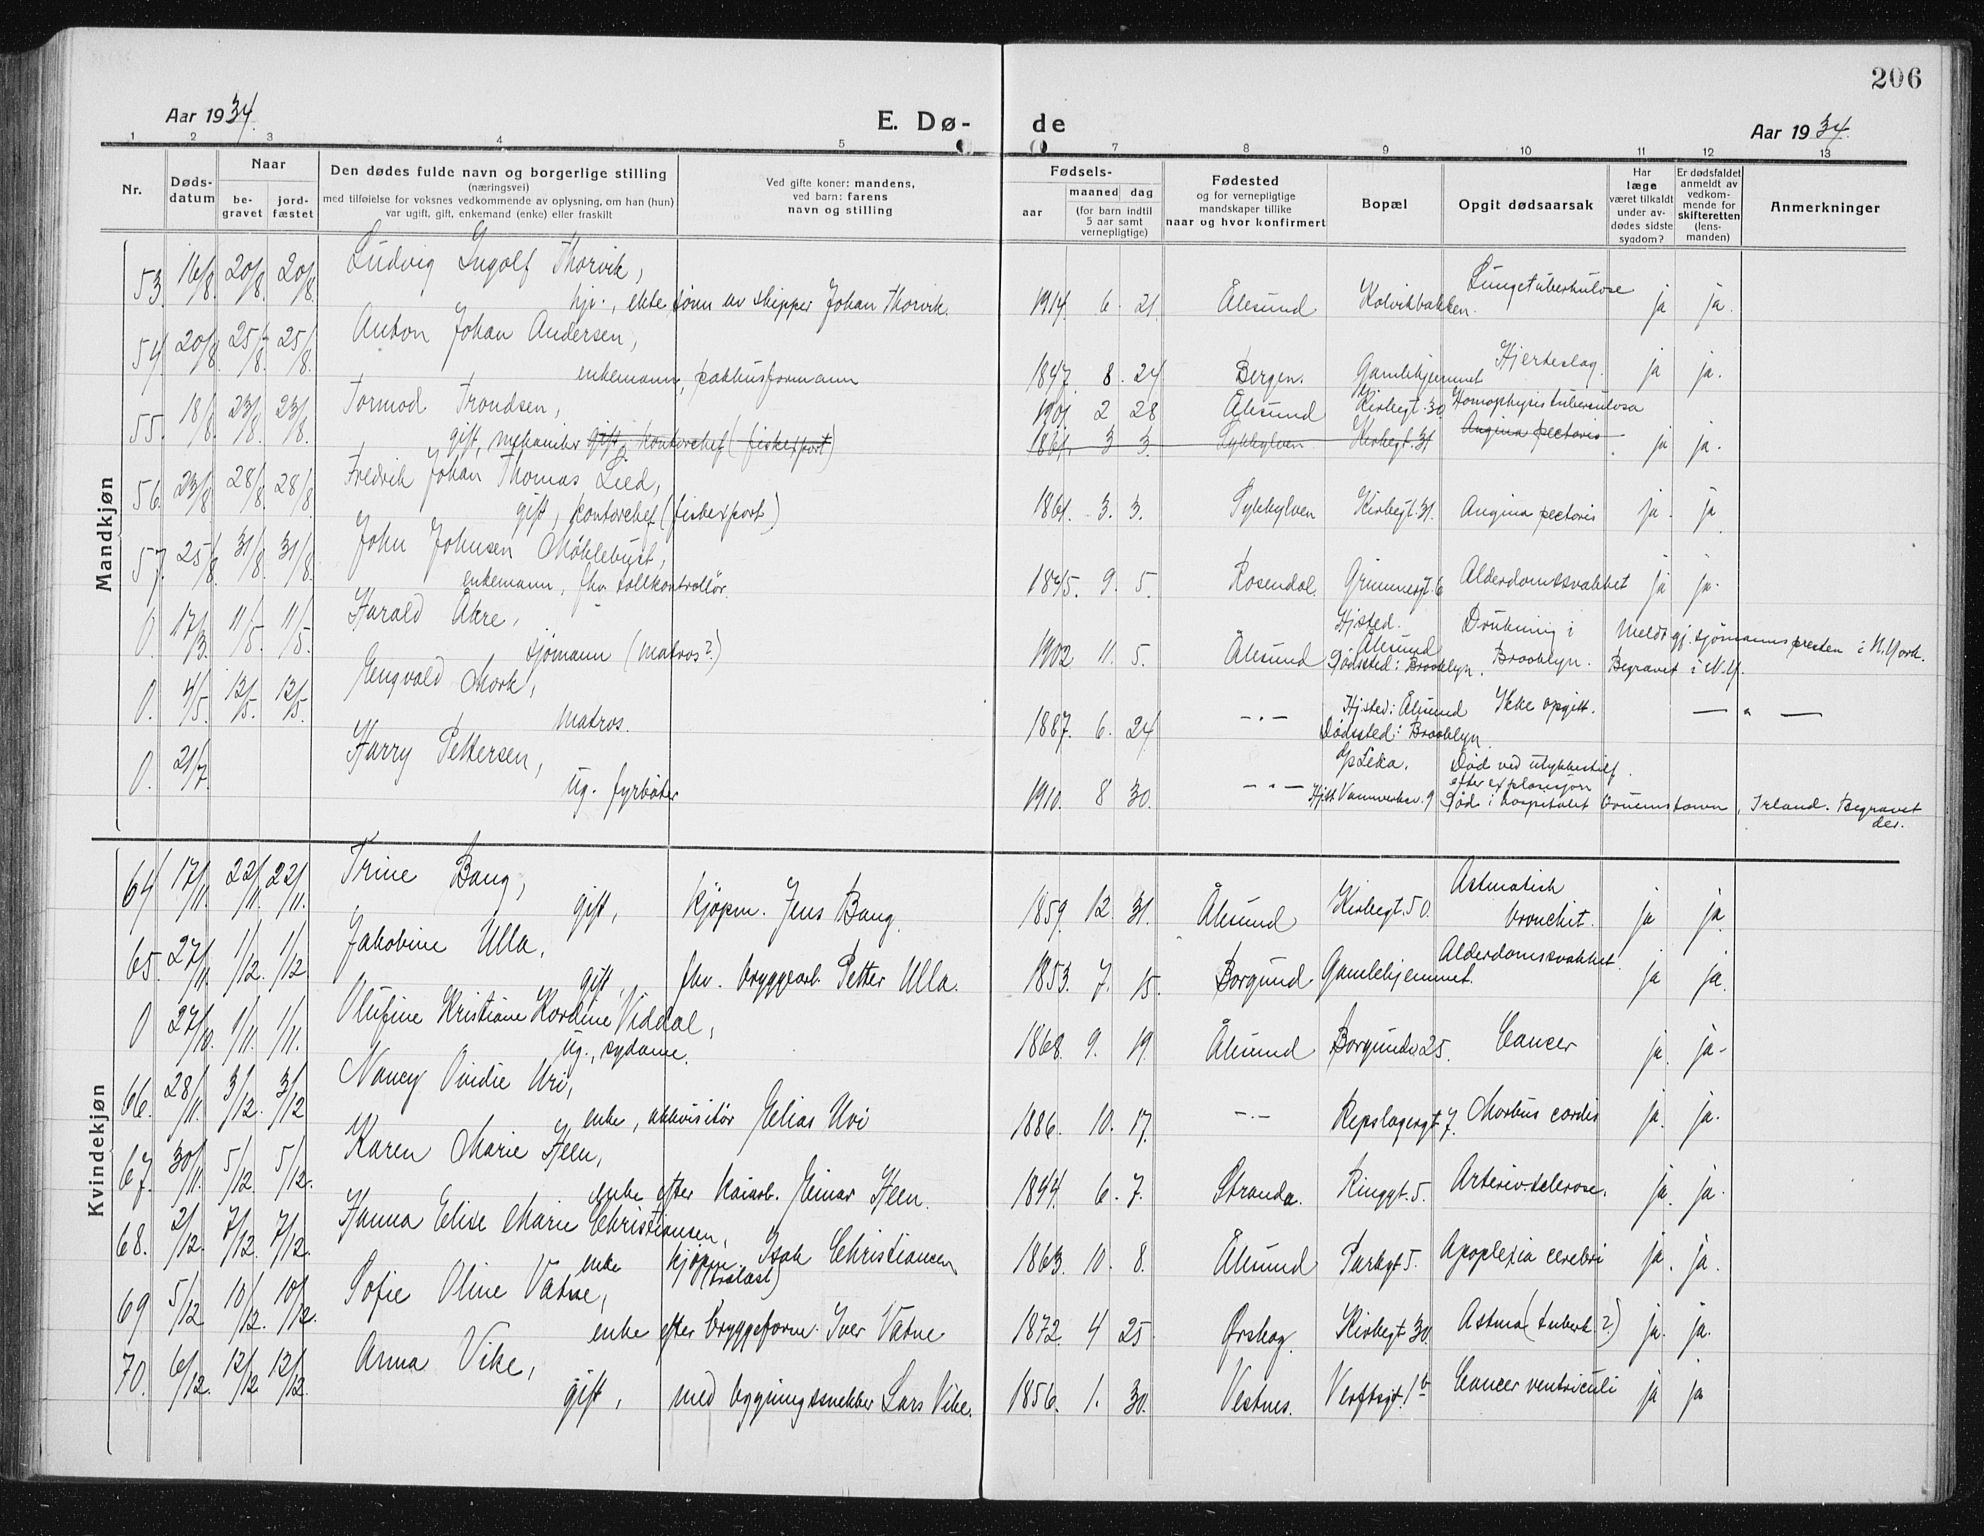 206
Aar 1934.
E. Dø- de
Aar 1934.
1 2 3 4 5 7 8 9 10 11 12 13
Nr.
Døds-
datum
Naar
be-
gravet
jord-
fæstet
Den dødes fulde navn og borgerlige stilling
(næringsvei)
med tilføielse for voksnes vedkommende av oplysning, om han (hun)
var ugift, gift, enkemand (enke) eller fraskilt
Ved gifte koner: mandens,
ved barn: farens
navn og stilling
Fødsels-
aar
maaned dag
(for barn indtil
5 aar samt
vernepligtige)
Fødested
og for vernepligtige
mandskaper tillike
naar og hvor konfirmert
Bopæl
Opgit dødsaarsak
Har
læge
været tilkaldt
under av-
dødes sidste
sygdom?
Er dødsfaldet
anmeldt av
vedkom-
mende for
skifteretten
(lens-
manden)
Anmerkninger
Mandkjøn
53. 16/8. 20/8. 20/8. Ludvig Ingolf Thorvik,
hjv., ekte sønn av skipper Johan Thorvik. 1914. 6. 21. Ålesund Kolvikbakken. Lungetuberkulose ja ja.
54. 20/8. 25/8. 25/8. Anton Johan Andersen,
enkemann, pakhusformann 1847. 8. 24 Bergen. Gamlehjemmet Hjerteslag. ja ja.
55. 18/8. 23/8. 23/8. Tormod Trondsen, 1901. 2 28 Ålesund Kirkegt. 30 Hæmophysis tuberculosa
gift, mekaniker gift, kontorchef (fiskexport) 1861. 3 3. Sykkylven Kirkegt. 31 Angina pectoris ja ja.
56. 23/8 28/8. 28/8. Fredrik Johan Thomas Lied,
gift, kontorchef (fiskexport) 1861. 3. 3. Sykkylven Kirkegt. 31. Angina pectoris ja. ja
57. 25/8. 31/8. 31/8. John Johnsen Møklebust,
enkemann, fhv. tollkontrollør. 1845. 9. 5. Rosendal. Grimmergt. 6 Alderdomssvakhet ja ja.
0. 17/3. 11/5. 11/5. Harald Åkre,
sjømann (matros?) 1902 11. 5. Ålesund Hjsted. Ålesund
Dødssted: Brooklyn. Drukning i
Brooklyn. Meldt gj. sjømannspresten i N. York.
Begravet i N.Y.
0. 4/5. 12/5. 12/5. Engvald Mork,
matros. 1887. 6. 24 — " — Hjsted: Ålesund
Dødssted: Brooklyn. Ikke opgitt. — " —
0. 21/7. Harry Pettersen,
ug. fyrbøter 1910. 8 30. — " — Hjst. 9 Død ved ulykkestilf.
efter explosjon
Død i hospitalet Queenstown, Irland. Begravet
der.
Kvindekjøn
64 17/11. 22/11. 22/11. Trine Bang,
gift, kjøpm. Jens Bang. 1859. 12. 31. Ålesund Kirkegt. 50. Astmatisk
bronchit. ja ja.
65. 27/11. 1/12. 1/12. Jakobine Ulla,
gift, fhv. bryggearb. Petter Ulla. 1853. 7. 15. Borgund Gamlehjemmet. Alderdomssvakhet. ja ja.
0 27/10. 1/11. 1/11. Olufine Kristiane Kordine Viddal,
ug., sydame. 1868. 9. 19. Ålesund Borgundv. 25. Cancer ja. ja-
66. 28/11. 3/12. 3/12 Nancy Ovidie Uri,
enke, akkvisitør Elias Uri 1886. 10. 17. — " — Repslagergt. 7. Morbus cordis ja. ja.
67. 30/11. 5/12. 5/12. Karen Marie Heen,
enke efter kaiarb. Einar Heen. 1844. 6. 7. Stranda. Ringgt. 5. Arteriosclerose. ja. ja.
68. 2/12. 7/12. 7/12. Hanna Elise Marie Christiansen,
enke kjøpm. Isak Christiansen
(trelast) 1863. 10. 8. Ålesund Parkgt 5. Apoplexia cerebri ja. ja.
69 5/12 10/12. 10/12. Sofie Oline Vatne,
enke efter bryggeform. Iver Vatne 1872. 4 25. Ørskog. Kirkegt. 30. Astma (tuberk.?) ja. ja.
70. 6/12. 12/12 12/12. Anna Vike,
gift, med bygningssnekker Lars Vike. 1856. 1. 30. Vestnes. Verftsgt. 1b Cancer ventriculi ja ja